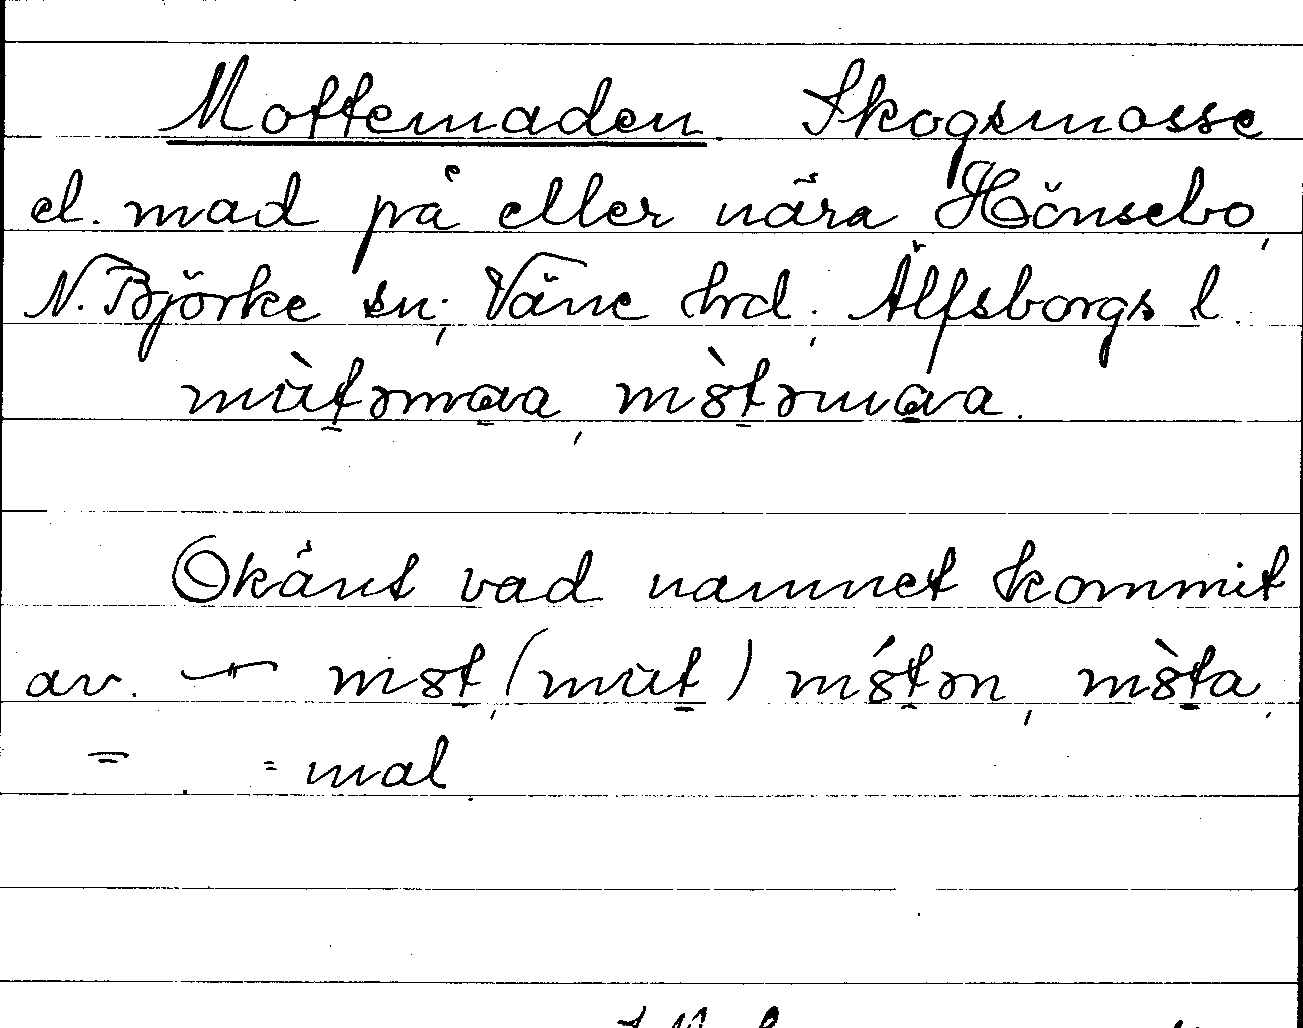 Mottemaden. Skogsmosse
el. mad på eller nära Hönsebo,
N. Björke sn, Väne hrd, Älfsborgs l.
mùtəmaa, m8̀təmaa.
Okänt vad namnet kommit
av. m8t, (mut) m8́tən, m8̀ta,
= mal.